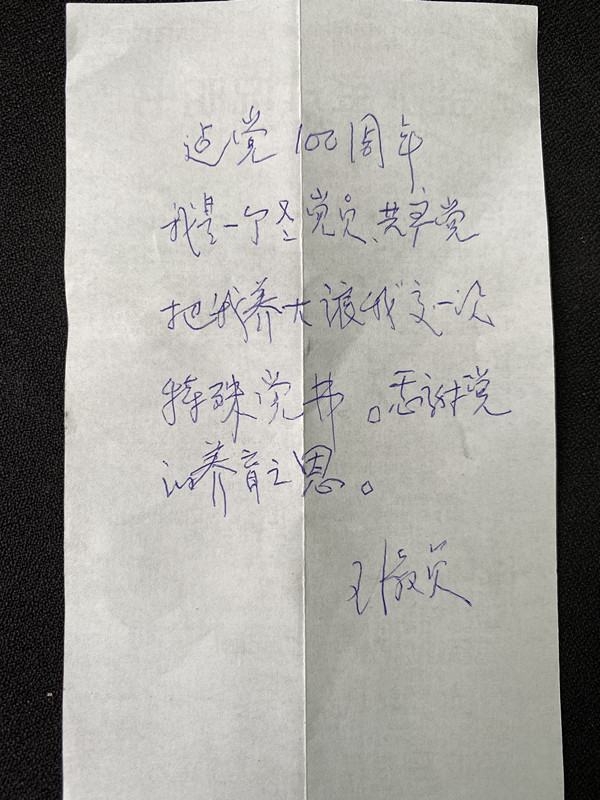 迎党100周年
我是一个老党员、共产党
把我养大让我交一次
特殊党书。感谢党
的养育之恩。
王淑贞